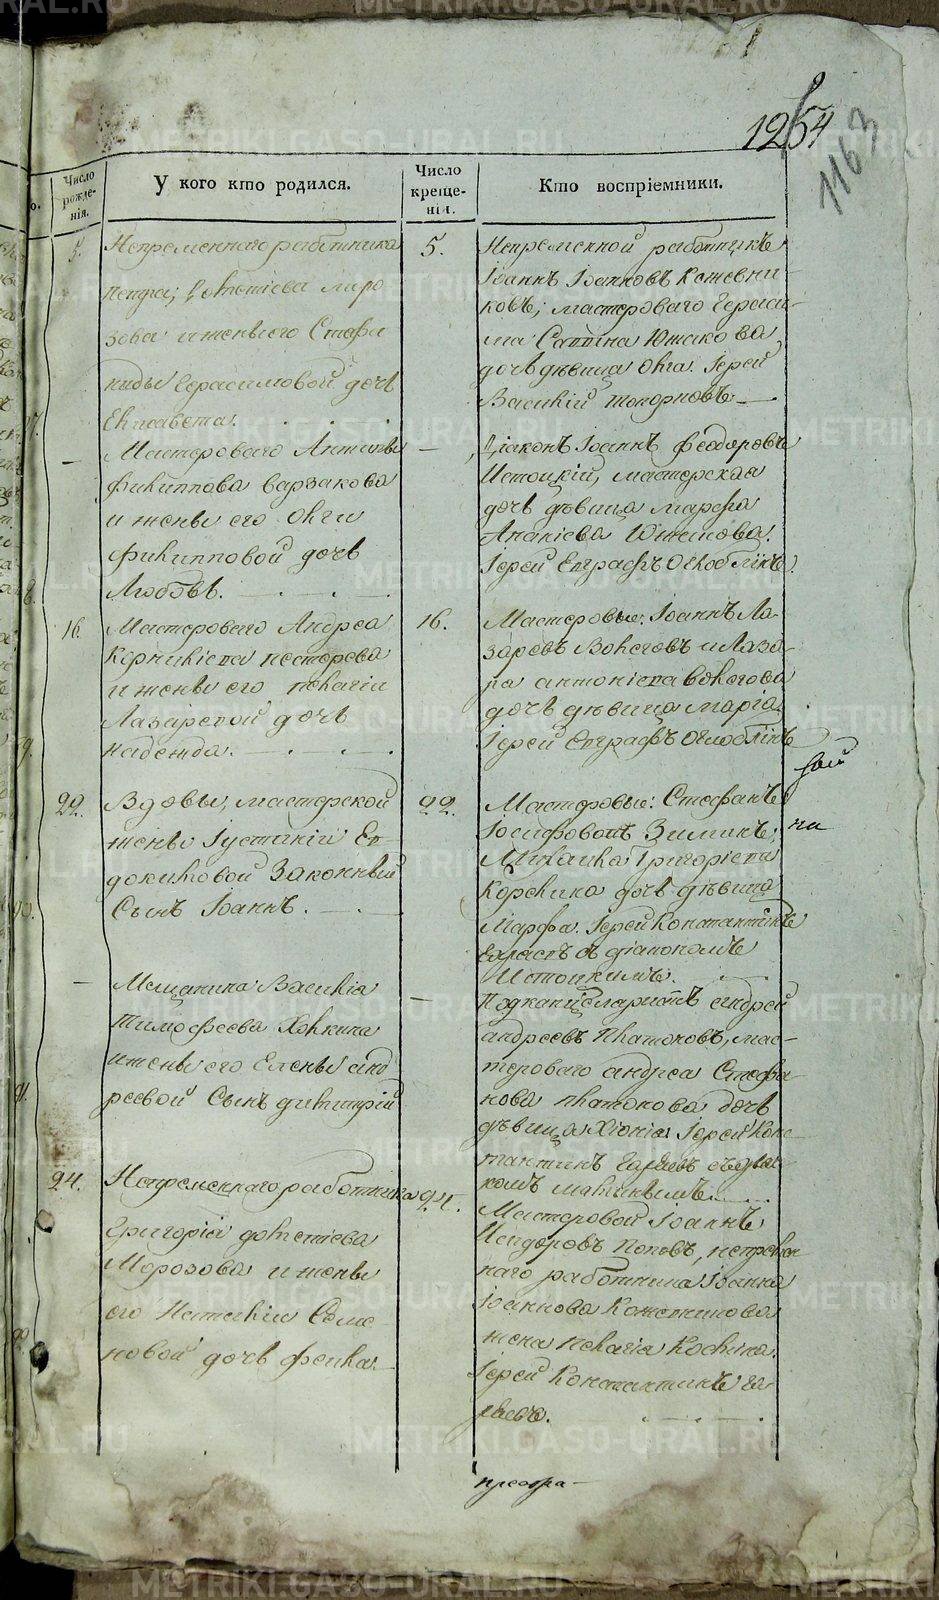 1254
1163
Число рожденія.
У кого кто родился.
Число крещенія.
Кто воспріемники.
5.
Непременнаго работника
Петра Фотіева Моро
зова и жены его Стефа
ниды Герасимовой дочь
Елисавета.
5.
Непременной работникъ
Іоаннъ Іоанновъ Кожевни
ковъ; мастероваго Гераси
ма Саввина Южакова
дочь девица Ольга. Іерей
Василій Топорковъ.
—
Мастероваго Антипы
Филиппова Варзакова
и жены его Ольги
Филипповой дочь
Любовь.
—
Діаконъ Іоаннъ Феодоровъ
Истоцкій, мастерская
дочь девица Марфа
Іерей Евграфъ Оглоблинъ.
16.
Мастероваго Андреа
Корниліева Пестерева
и жены его Пелагіи
Лазаревой дочь
Надежда.
16.
Мастеровые: Іоаннъ Ла-
заревъ Волеговъ и Лаза-
ра Антоніева Волегова
дочь девица Марія.
Іерей Евграфъ Оглоблинъ
22.
Вдовы, мастерской
жены Іустиніи Ев
докимовой законный
сынъ Іоаннъ.
22.
Мастеровые: Стефанъ
Іосифовъ Зиминъ,
Михаила Григоріева
Корелина дочь девица
Марфа. Іерей Константинъ
съ діакономъ
Истоцкимъ.
—
Мещанина Василія
Тимофеева Холкина
и жены его Елены Анд
реевой сынъ Димитрій
—
Подканцеляристъ Андрей
Андреевъ Платоновъ, мас-
тероваго Андреа Стефа
нова Платонова дочь
девица Хіонія. Іерей Кон-
стантинъ
24.
Непременнаго работника
Григоріа Фотіева
Морозова и жены
его Наталіи Семе
новой дочь Фекла.
24.
Мастеровой Іоаннъ
Исидоровъ Поповъ, непремен
наго работника Іоанна
Іоаннова Кожевникова
жена Пелагіа
Іерей Константинъ
на
METRIKI.GASO-URAL.RU